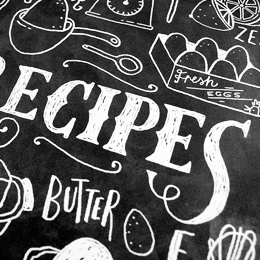 ZE
Fresh
EGGS
RECIPES
BUTTER
F